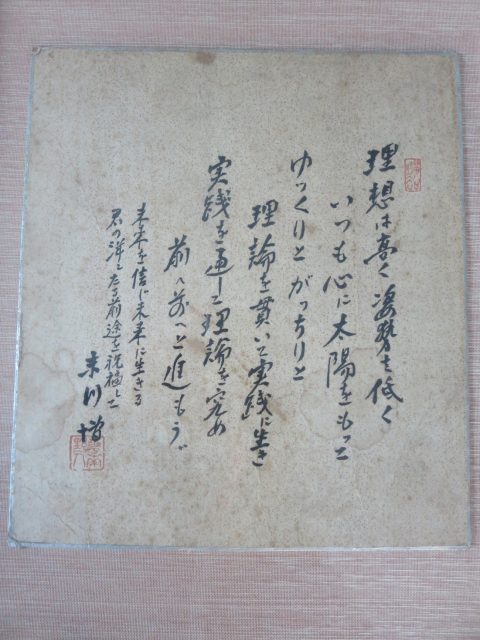 理想は高く姿勢を低く
いつも心に太陽をもつて
ゆっくりと がっちりと
理論を貫いて実践に生き
実践を通して理論を究め
前へ前へと進もう
未来を信じ未来に生きる
君の洋々たる前途を祝福して
末川博